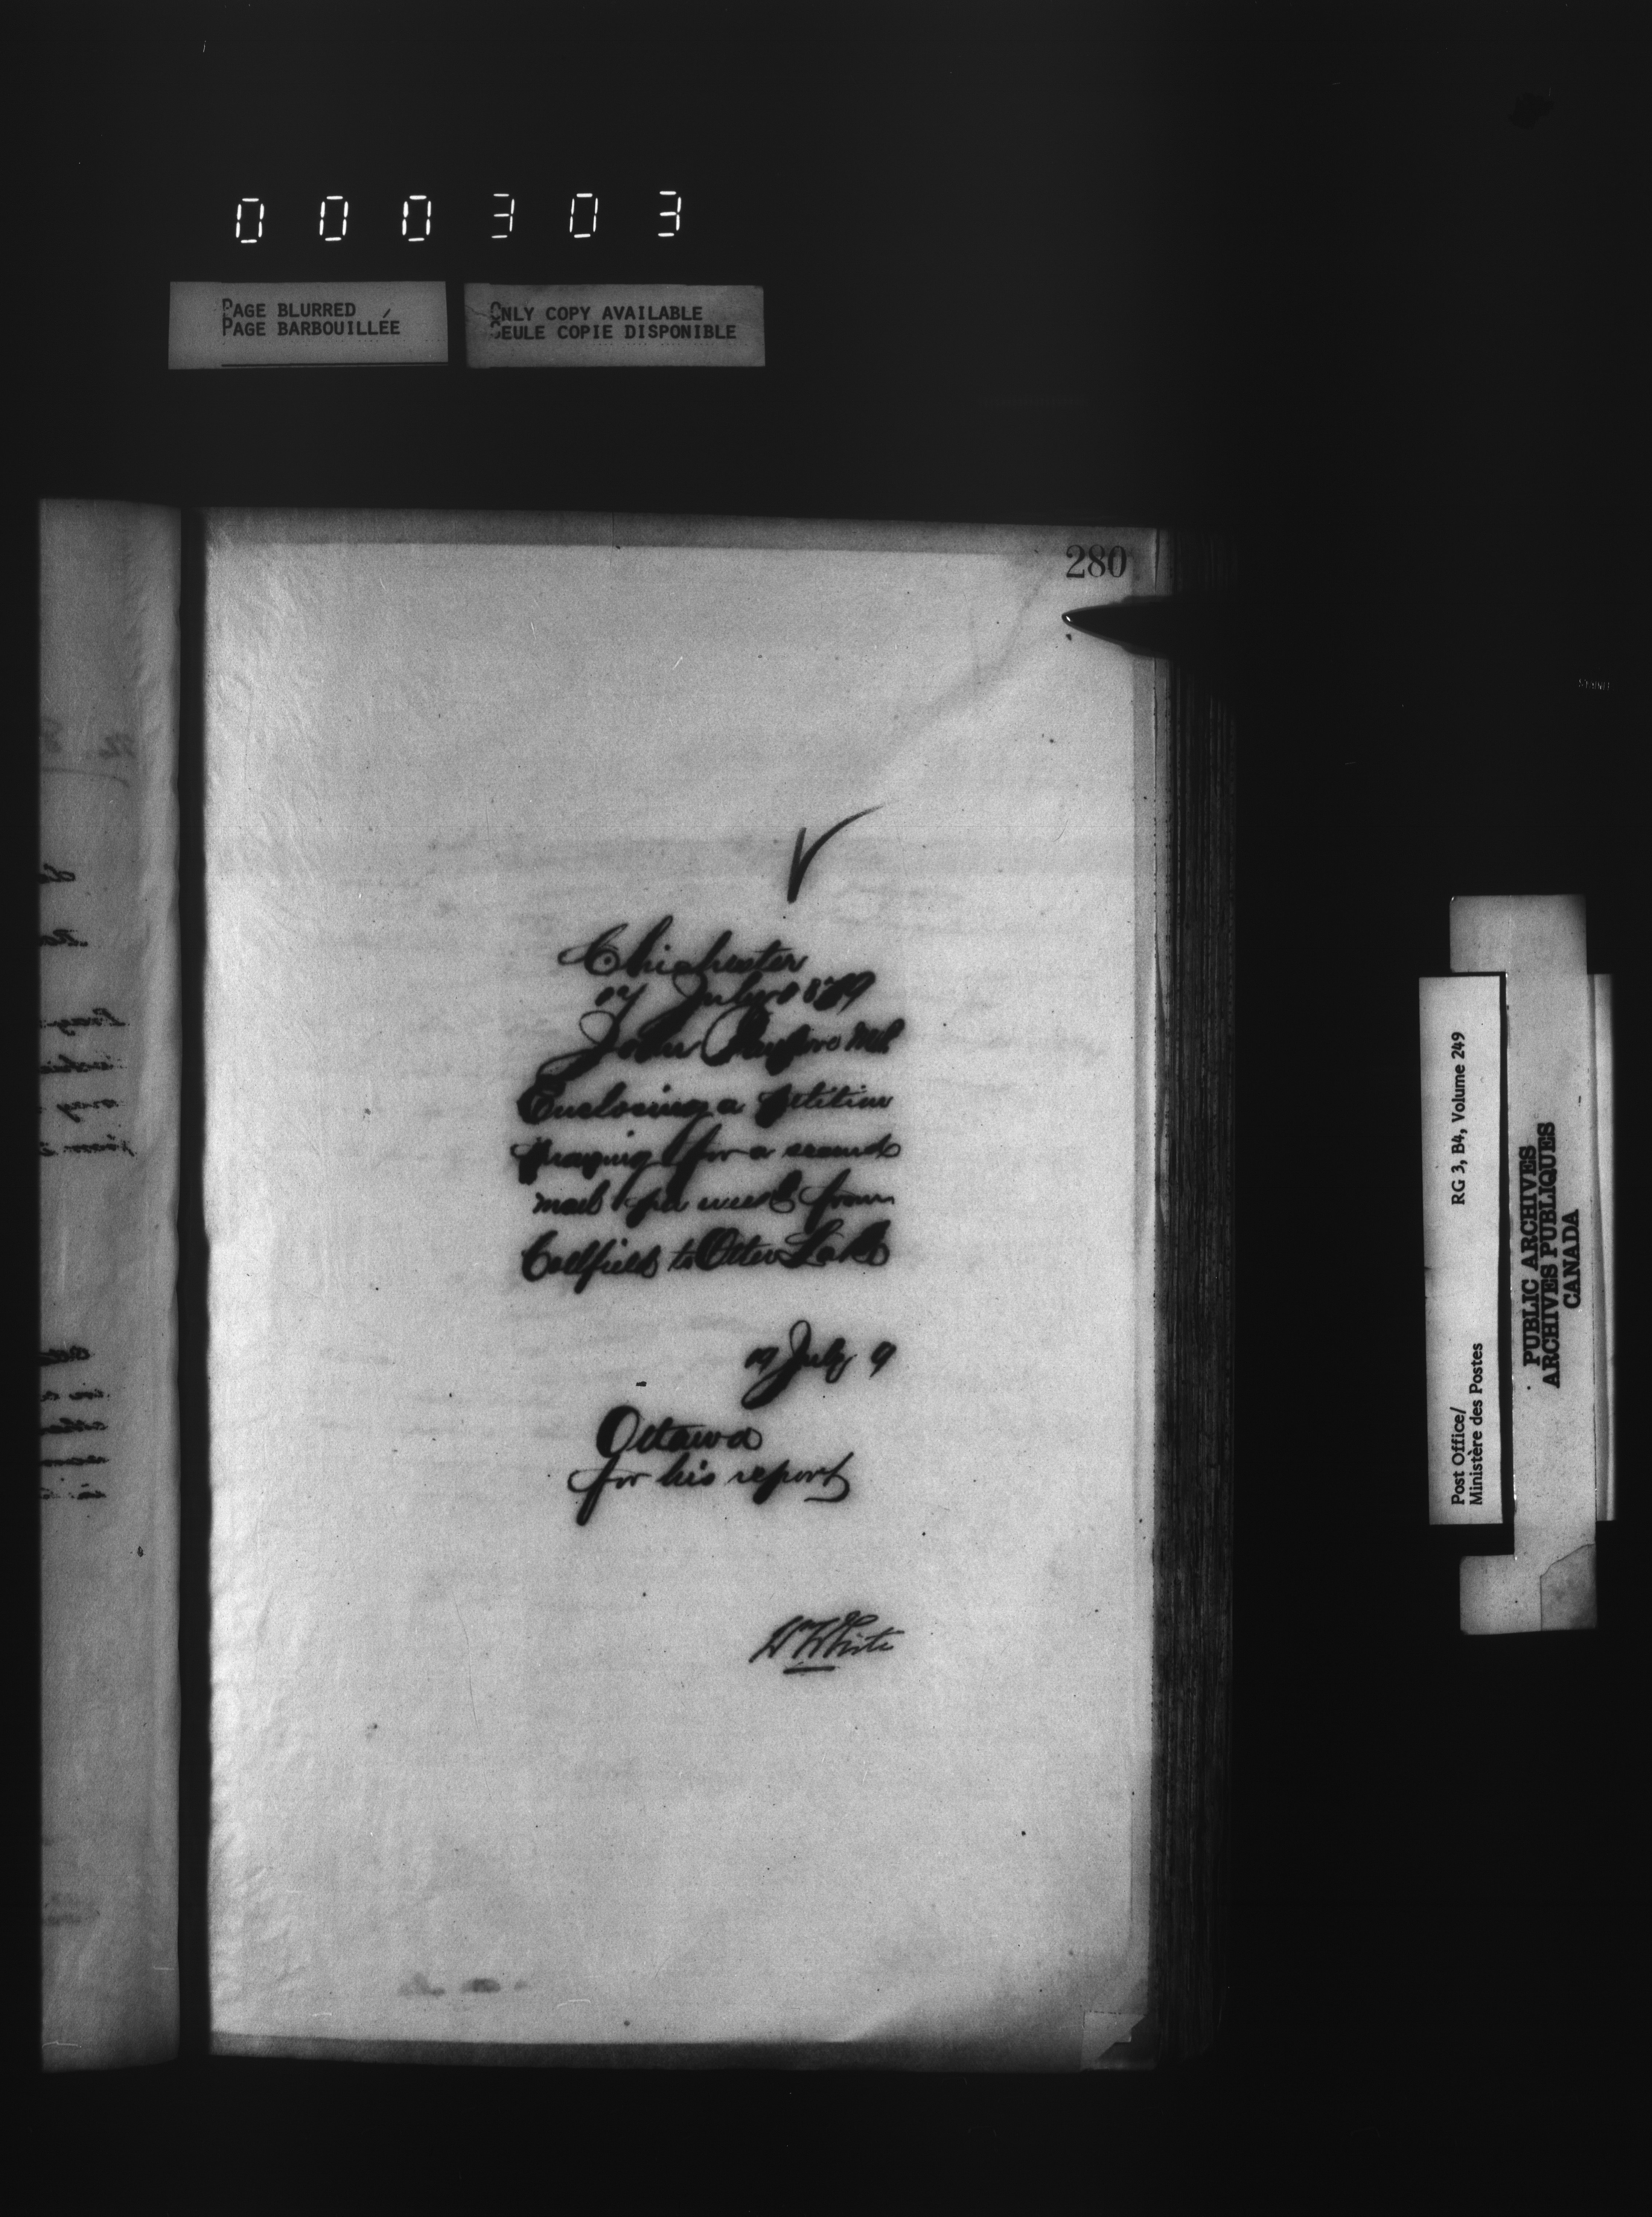 000303
PAGE BLURRED
PAGE BARBOUILLÉE
ONLY COPY AVAILABLE
SEULE COPIE DISPONIBLE
280
Chichester
17 July 1879
John MP
Enclosing a petition
praying for a second
mail per week from
Coulfield to Otter Lake
19 July 9
Ottawa
for his report
Wm White
Post Office/
Ministère des Postes
RG 3, B4, Volume 249
PUBLIC ARCHIVES
ARCHIVES PUBLIQUES
CANADA